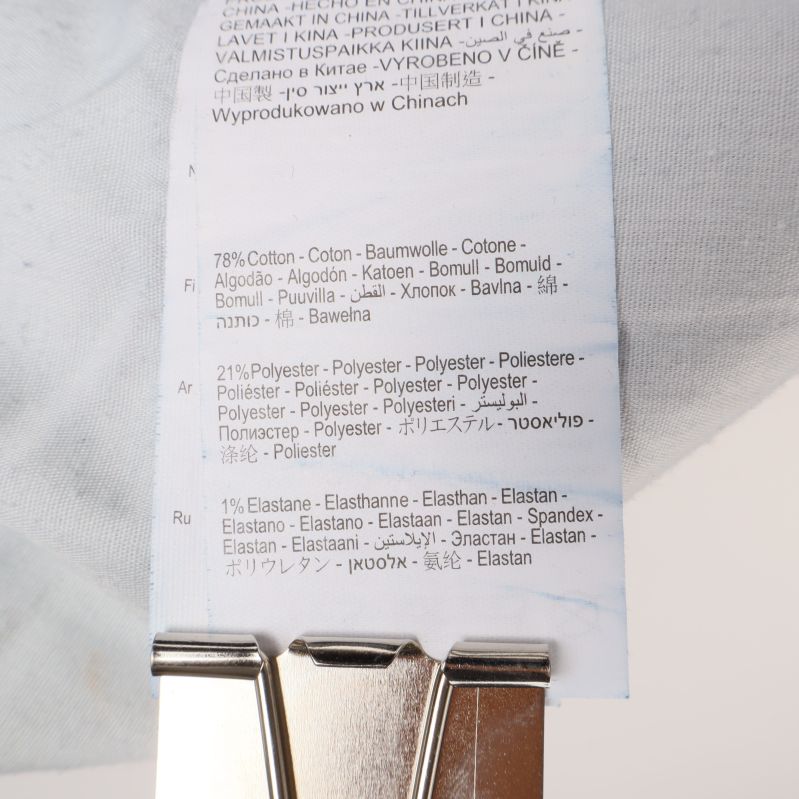 CHINA -HECHO EN CHINA
GEMAAKT IN CHINA -TILLVERKAT I KINA
LAVET I KINA -PRODUSERT I CHINA -
VALMISTUSPAIKKA KIINA -صنع في الصين-
Сделано в Китае -VYROBENO V ČÍNĚ -
中国製 -ארץ ייצור סין -中国制造 -
Wyprodukowano w Chinach
78% Cotton - Coton - Baumwolle - Cotone -
Algodão - Algodón - Katoen - Bomull - Bomuld -
Bomull - Puuvilla - القطن - Хлопок - Bavlna - 綿 -
כותנה - 棉 - Bawełna
21% Polyester - Polyester - Polyester - Poliestere -
Poliéster - Poliéster - Polyester - Polyester -
Polyester - Polyester - Polyesteri - البوليستر -
Полиэстер - Polyester - ポリエステル - פוליאסטר -
涤纶 - Poliester
1% Elastane - Elasthanne - Elasthan - Elastan -
Elastano - Elastano - Elastaan - Elastan - Spandex -
Elastan - Elastaani - الإيلاستين - Эластан - Elastan -
ポリウレタン - אלסטאן - 氨纶 - Elastan
Fi
Ar
Ru